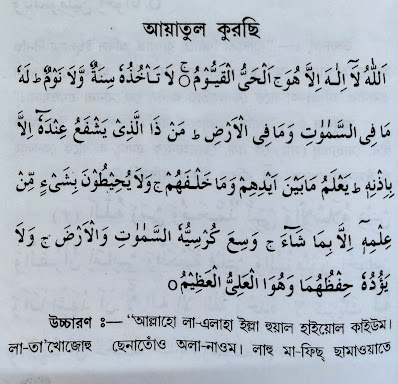 আয়াতুল কুরছি
اَللّٰهُ لَآ اِلٰهَ اِلَّا هُوَ ج اَلْحَىُّ الْقَيُّوْمُ ۚ○ لَا تَاْخُذُهٗ سِنَةٌ وَّلَا نَوْمٌ ط لَهٗ
مَا فِى السَّمٰوٰتِ وَمَا فِى الْاَرْضِ ط مَنْ ذَا الَّذِىْ يَشْفَعُ عِنْدَهٗٓ اِلَّا
بِاِذْنِهٖ ط يَعْلَمُ مَابَيْنَ اَيْدِيْهِمْ وَمَا خَلْفَهُمْ ج وَلَا يُحِيْطُوْنَ بِشَىْءٍ مِّنْ
عِلْمِهٖٓ اِلَّا بِمَا شَآءَ ج وَسِعَ كُرْسِيُّهُ السَّمٰوٰتِ وَالْاَرْضَ ج وَلَا
يَؤُدُهٗ حِفْظُهُمَا وَهُوَا الْعَلِىُّ الْعَظِيْمُ○
উচ্চারণ ঃ— "আল্লাহো লা-এলাহা ইল্লা হুয়াল হাইয়োল কাইউম।
লা-তা'খোজোহু ছেনাতোঁও অলা-নাওম। লাহু মা-ফিছ্ ছামাওয়াতে